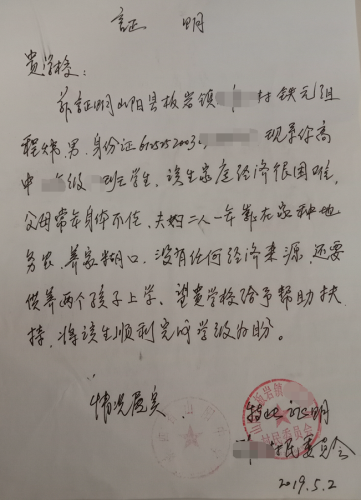 証 明
贵学校：
兹証明山阳县板岩镇 村铁元组
程 男，身份证6125252003 现系你高
中 级 班学生，该生家庭经济很困难，
父母常年身体不佳，夫妇二人一年靠在家种地
务农，养家糊口，没有任何经济来源，还要
供养两个孩子上学。望贵学校给予帮助扶
持，将该生顺利完成学级为盼。
情况属实
特此证明
村民委员会
2019.5.2
板岩镇
村民委员会